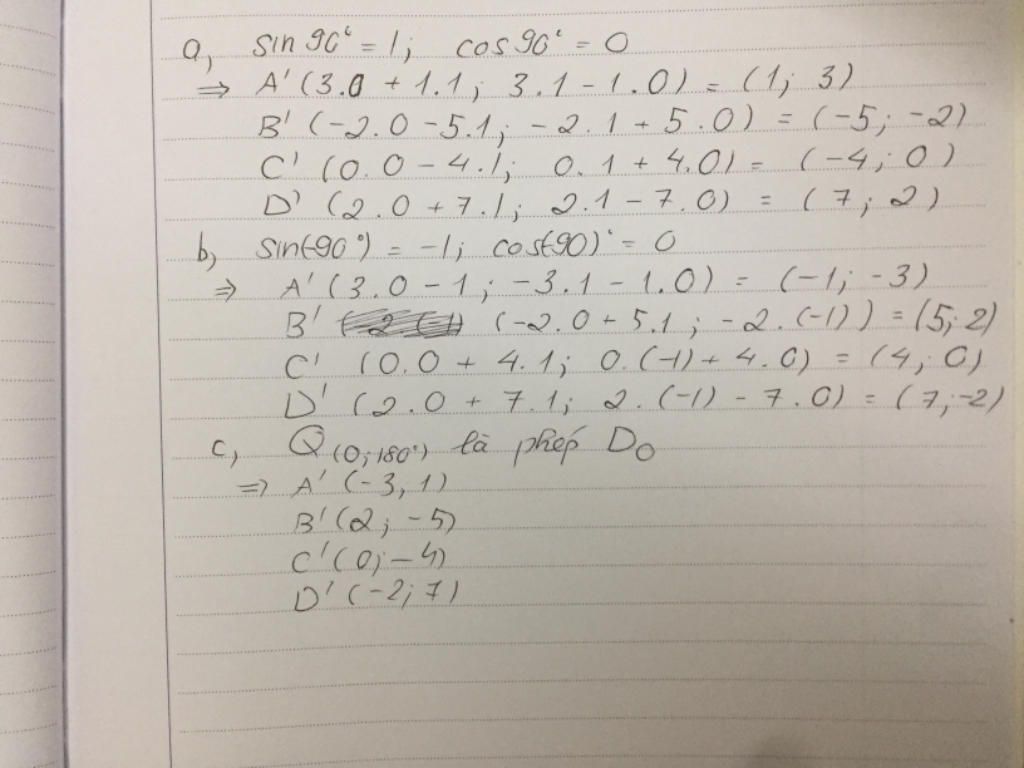 a, sin 90° = 1; cos 90° = 0
⇒ A' (3.0 + 1.1; 3.1 - 1.0) = (1; 3)
B' (-2.0 - 5.1; -2.1 + 5.0) = (-5; -2)
C' (0.0 - 4.1; 0.1 + 4.0) = (-4; 0)
D' (2.0 + 7.1; 2.1 - 7.0) = (7; 2)
b, sin(-90°) = -1; cos(-90)° = 0
⇒ A' (3.0 - 1; -3.1 - 1.0) = (-1; -3)
B' (-2.0 + 5.1; -2.(-1)) = (5; 2)
C' (0.0 + 4.1; 0.(-1) + 4.0) = (4; 0)
D' (2.0 + 7.1; 2.(-1) - 7.0) = (7; -2)
c, Q(0; 180°) là phép Đo
⇒ A' (-3, 1)
B' (2; -5)
C' (0; -4)
D' (-2; 7)